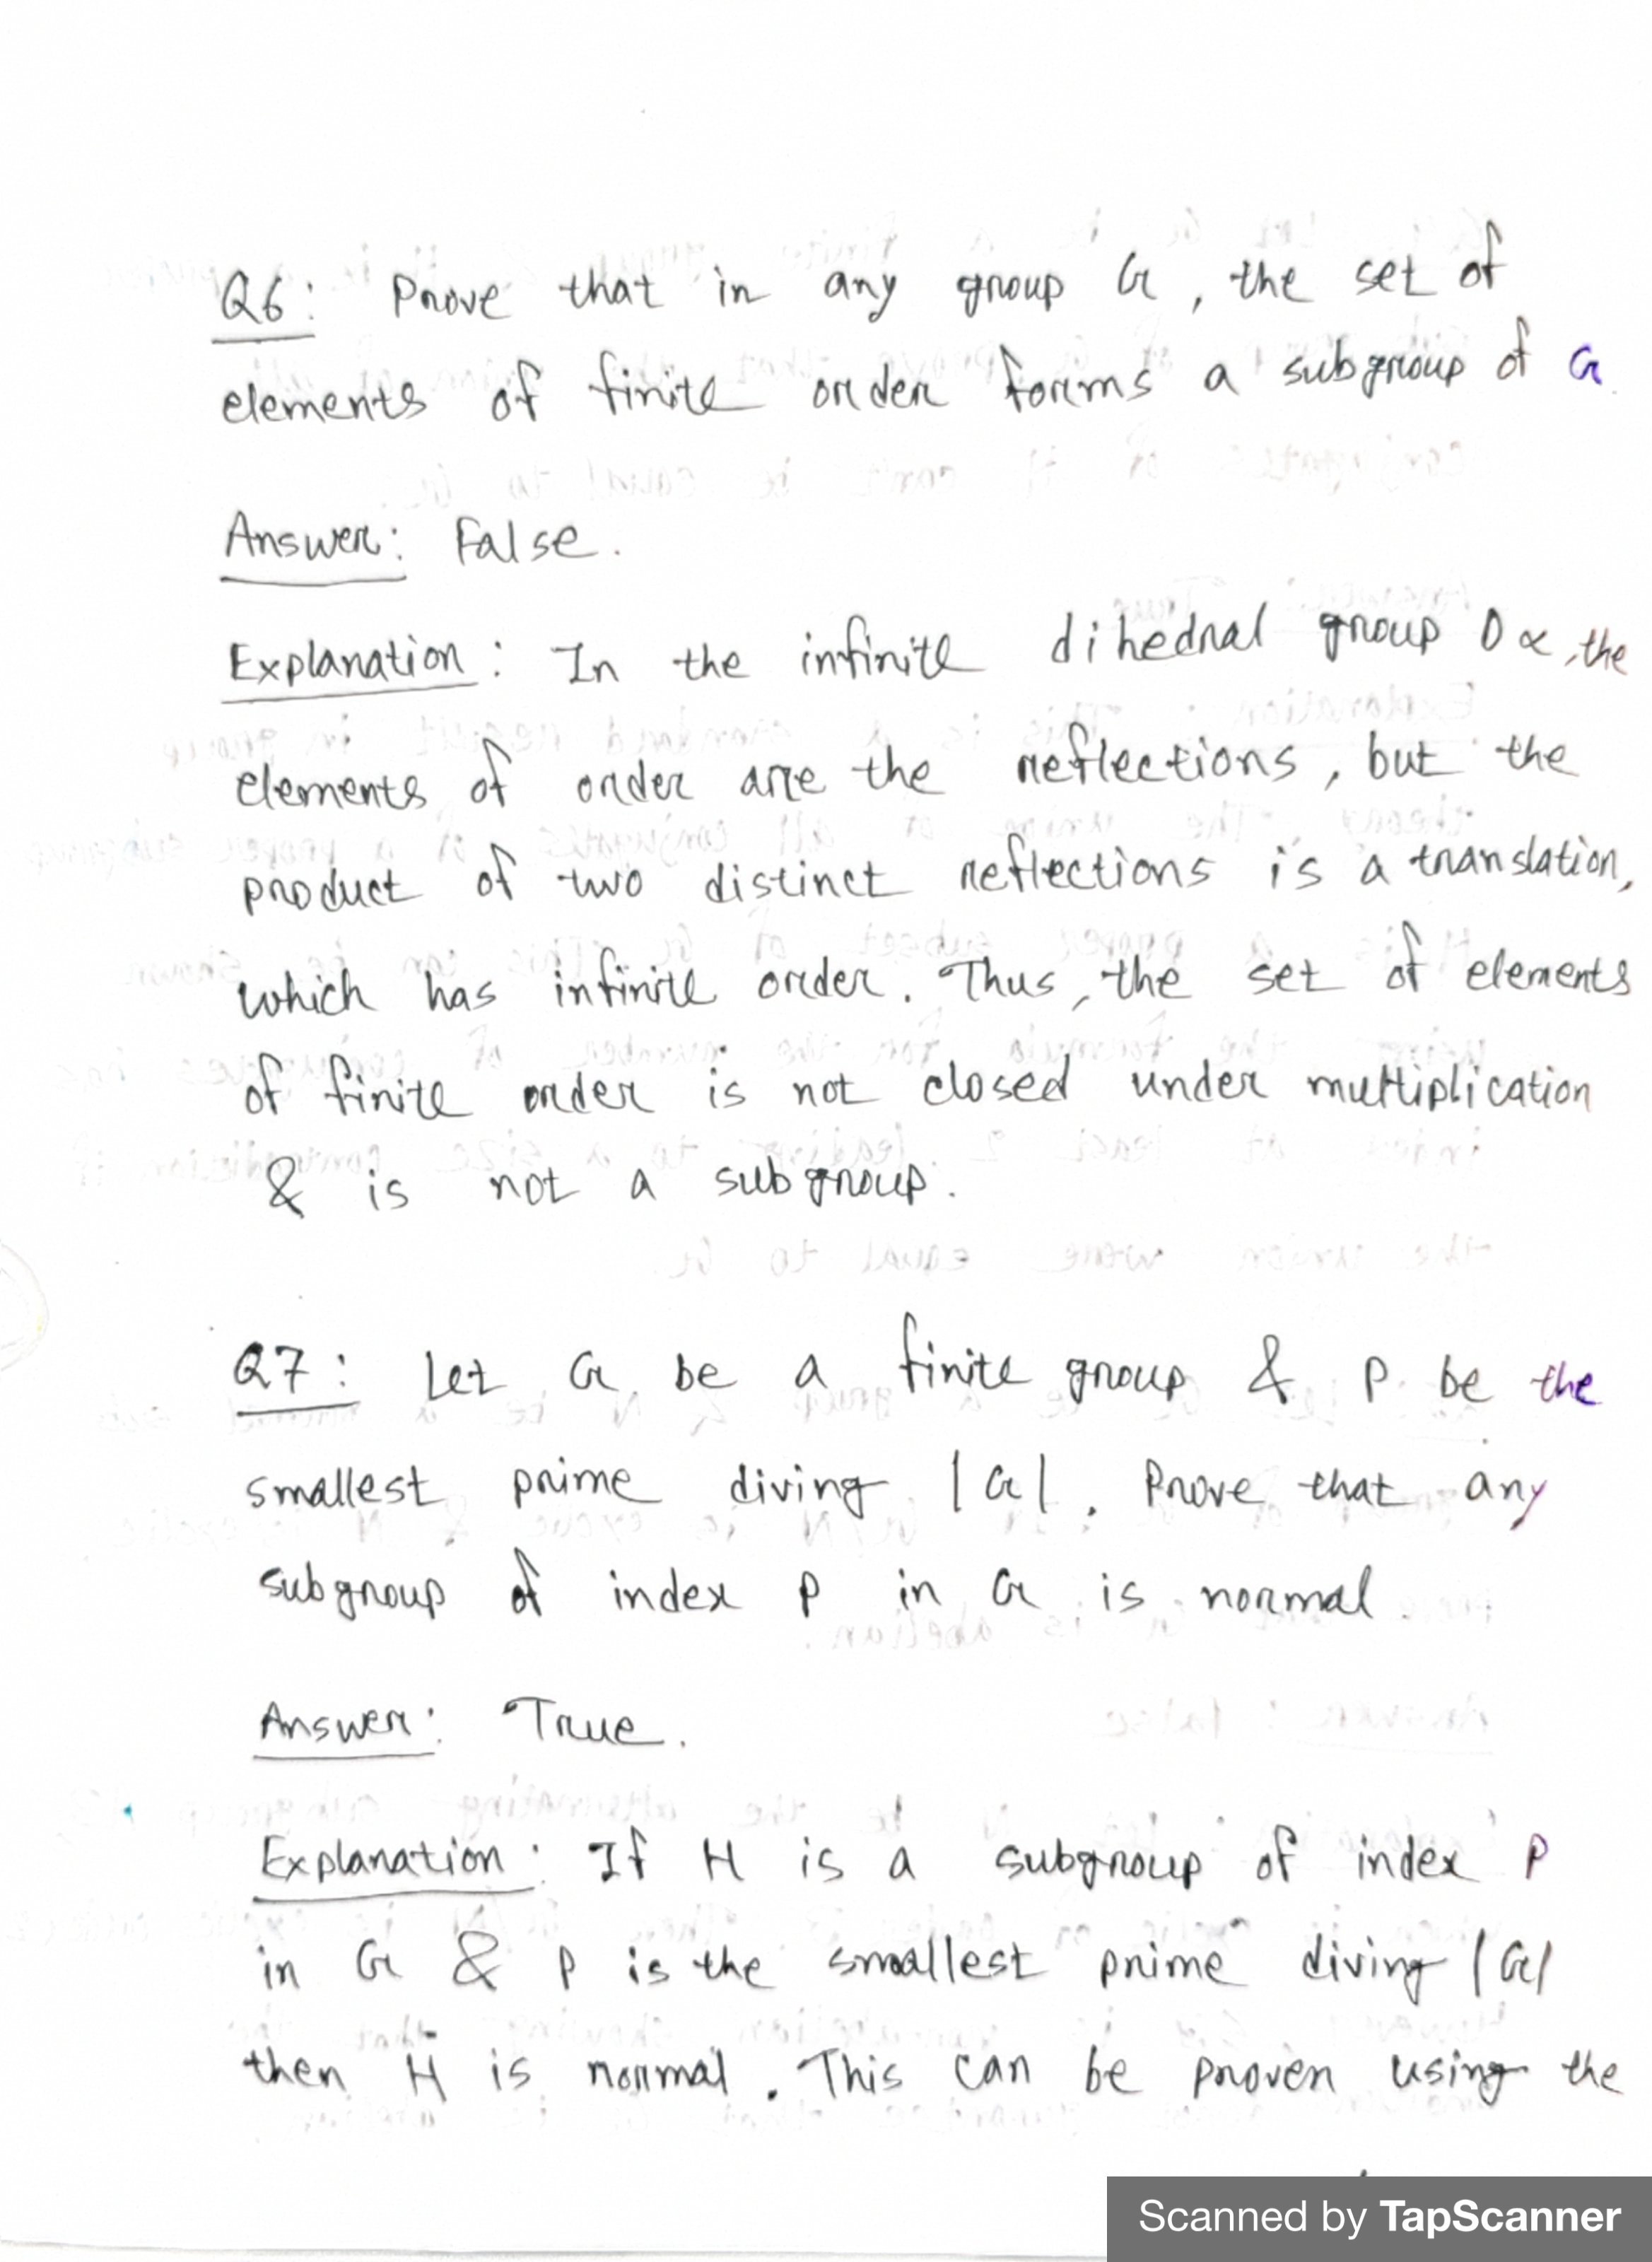 Q6: Prove that in any group G, the set of
elements of finite order forms a subgroup of G.
Answer: False.
Explanation: In the infinite dihedral group D∝, the
elements of order are the reflections, but the
product of two distinct reflections is a translation,
which has infinite order. Thus, the set of elements
of finite order is not closed under multiplication
& is not a subgroup.
Q7: Let G be a finite group & P be the
smallest prime diving |G|. Prove that any
subgroup of index p in G is normal.
Answer: True.
Explanation: If H is a subgroup of index P
in G & P is the smallest prime diving |G|
then H is normal. This can be proven using the
Scanned by TapScanner